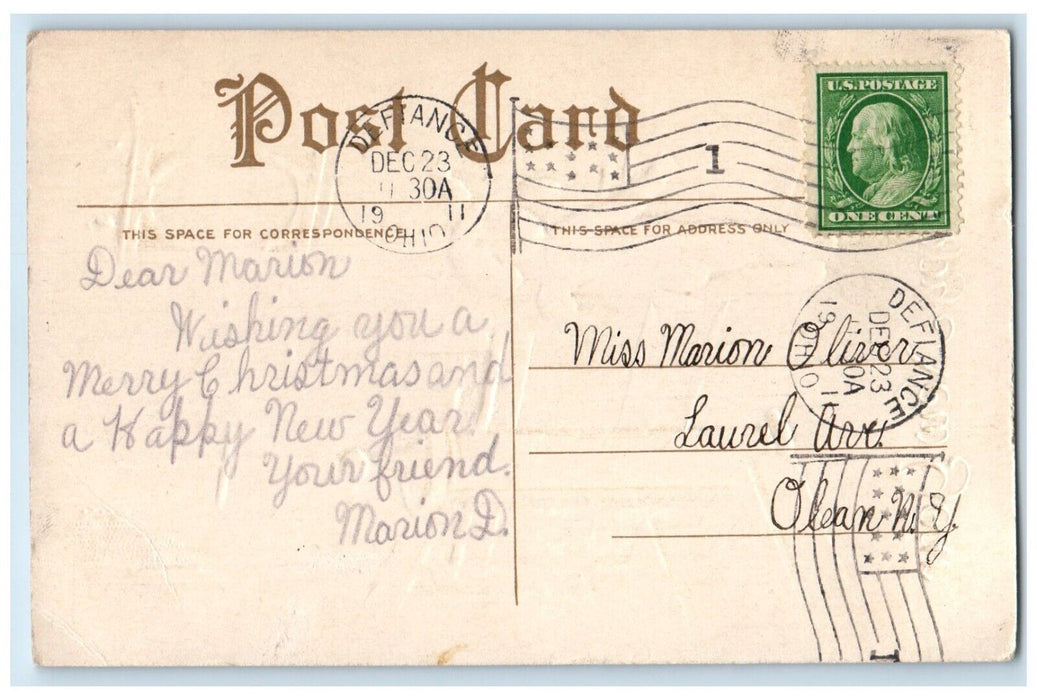 Post Card
DEFIANCE
DEC 23
30A
19 11
OHIO
1
U.S. POSTAGE
ONE CENT
THIS SPACE FOR CORRESPONDENCE
THIS SPACE FOR ADDRESS ONLY
Dear Marion
Wishing you a
Merry Christmas and
a Happy New Year.
Your friend.
Marion D.
Miss Marion Oliver
Laurel Ave.
Olean N.Y.
DEFIANCE
DEC 23
30A
19 11
OHIO
1